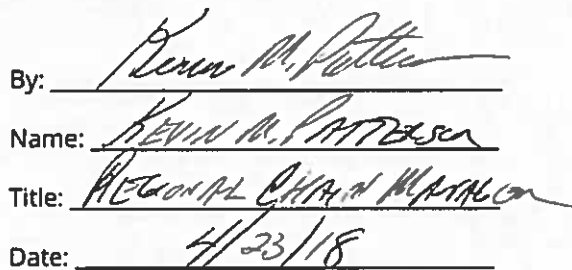 By: Kevin M. Patterson
Name: KEVIN M. PATTERSON
Title: REGIONAL CHAIN MANAGER
Date: 4/23/18